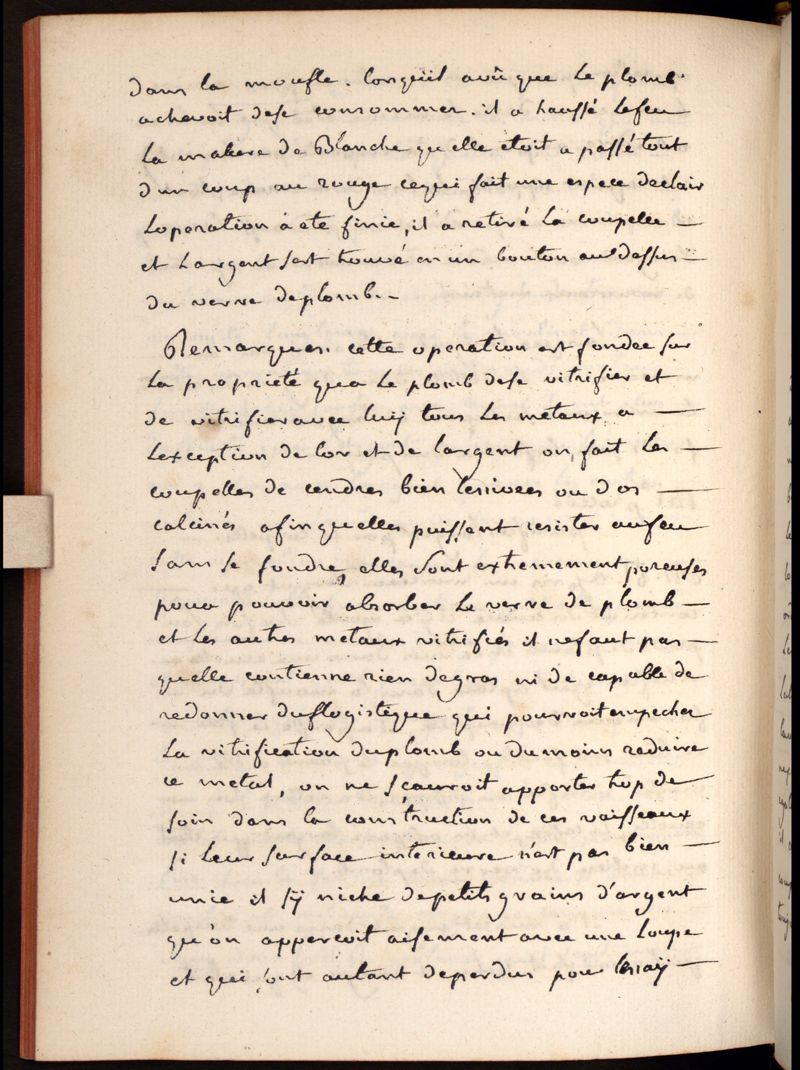 dans la moufle. lorsquil a vû que le plomb
achevoit dese consommer. il a haussé lefeu
la matiere de Blanche quelle etoit a passé tout
dun coup au rouge cequi fait une espece declair
loperation à eté finie, il a retiré la coupelle —
et largent sest trouvé en un bouton au dessus —
du verre deplomb. -
Remarques. cette operation est fondee sur
la proprieté qua le plomb dese vitrifier et
de vitrifier avec luÿ tous les metaux a —
lexception de lor et de largent on fait les —
coupelles de cendres bien lessivees ou dos —
calcinés afin quelles puissent resister au feu
sans se fondre, elles sont extremement poreuses
pour pouvoir absorber le verre de plomb —
et les autres metaux vitrifiés il nefaut pas —
quelle contienne rien degras ni de capable de
redonner duflogistique qui pourroit empecher
la vitrification duplomb ou dumoins reduire
ce metal, on ne sçauroit apporter trop de
soin dans la construction de ces vaisseaux
si leur surface interieure n'est pas bien —
unie il sÿ niche depetits grains d'argent
qu'on appercoit aisement avec une loupe
et qui sont autant deperdus pour lessaÿ —